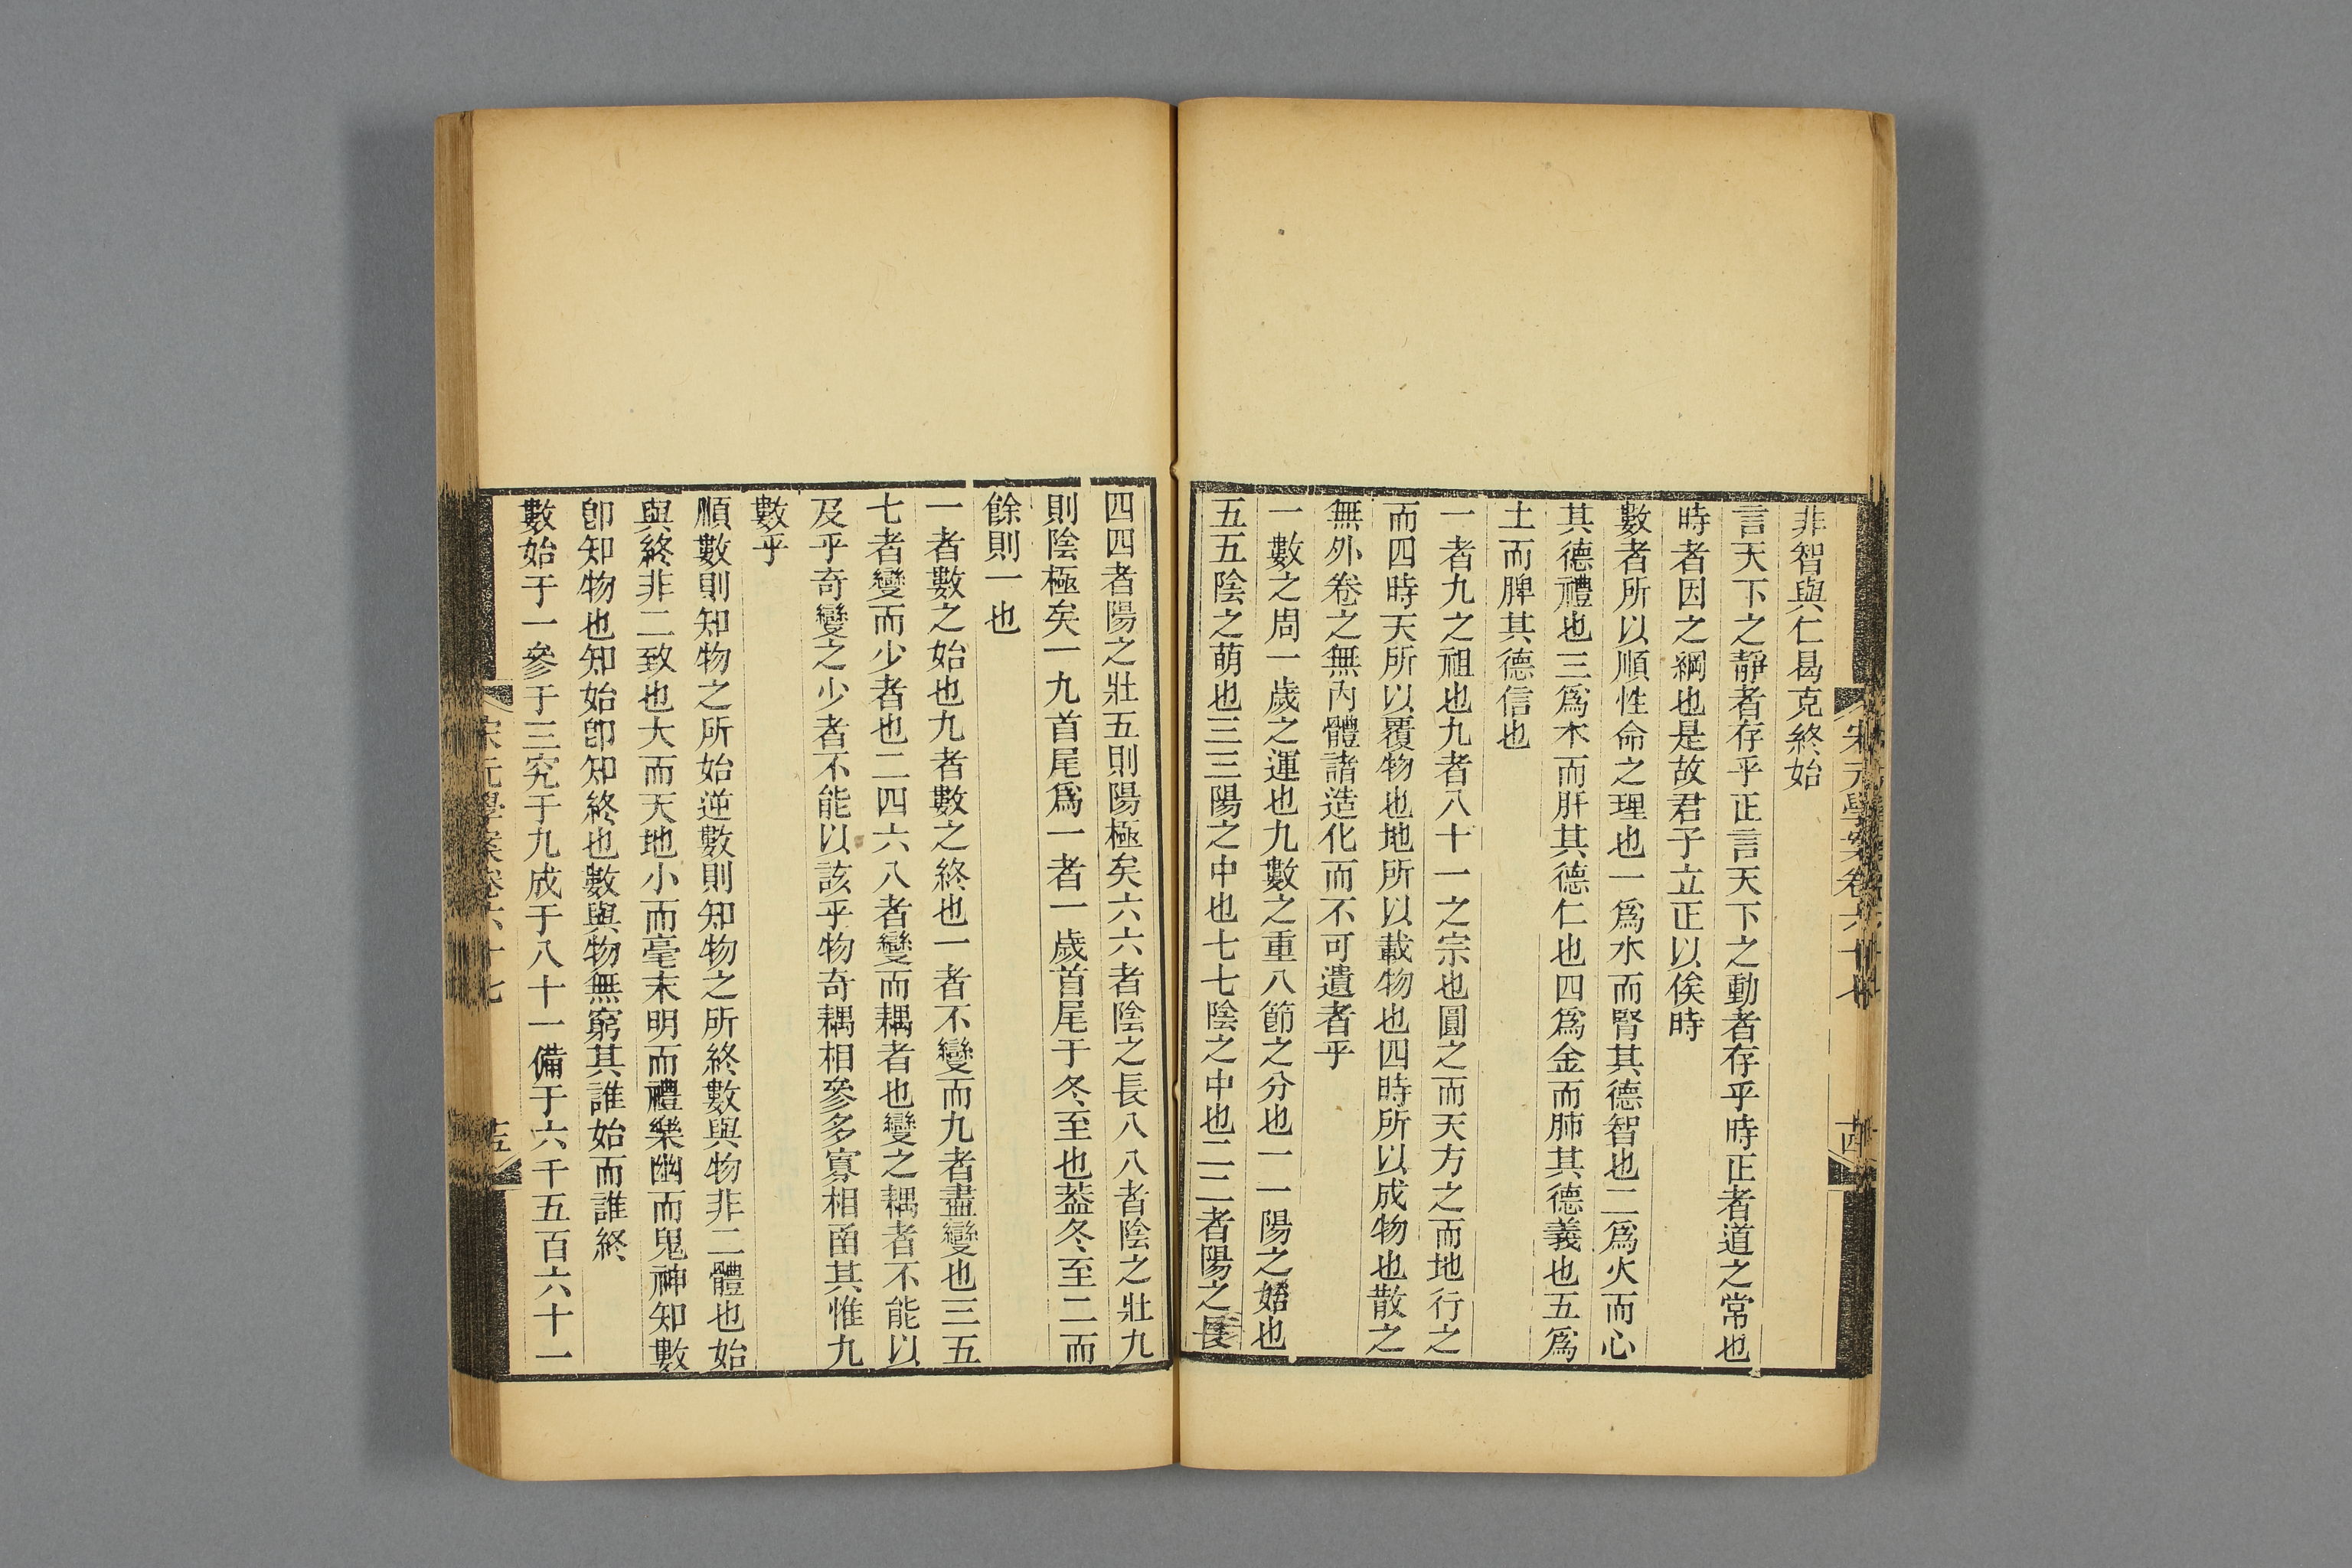 宋元學案卷六十七
非智與仁曷克終始
言天下之靜者存乎正言天下之動者存乎時正者道之常也
時者因之綱也是故君子立正以俟時
數者所以順性命之理也一爲水而腎其德智也二爲火而心
其德禮也三爲木而肝其德仁也四爲金而肺其德義也五爲
土而脾其德信也
一者九之祖也九者八十一之宗也圓之而天方之而地行之
而四時天所以覆物也地所以載物也四時所以成物也散之
無外卷之無內體諸造化而不可遺者乎
一數之周一歲之運也九數之重八節之分也一一陽之始也
五五陰之萌也三三陽之中也七七陰之中也二二者陽之長
四四者陽之壯五則陽極矣六六者陰之長八八者陰之壯九
則陰極矣一九首尾爲一者一歲首尾于冬至也蓋冬至二而
餘則一也
一者數之始也九者數之終也一者不變而九者盡變也三五
七者變而少者也二四六八者變而耦者也變之耦者不能以
及乎奇變之少者不能以該乎物奇耦相參多寡相函其惟九
數乎
順數則知物之所始逆數則知物之所終數與物非二體也始
與終非二致也大而天地小而毫末明而禮樂幽而鬼神知數
卽知物也知始卽知終也數與物無窮其誰始而誰終
數始于一參于三究于九成于八十一備于六千五百六十一
宋元學案卷六十七